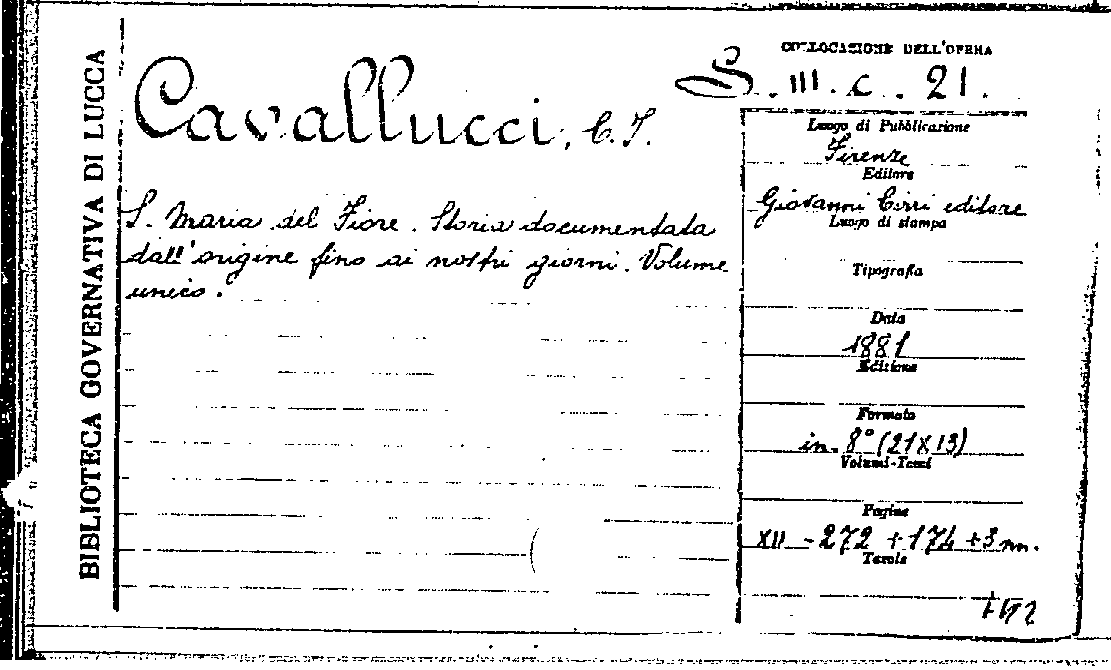 BIBLIOTECA GOVERNATIVA DI LUCCA
COLLOCAZIONE DELL'OPERA
S. III. c. 21.
Cavallucci, C. J.
S. Maria del Fiore. Storia documentata
dall'origine fino ai nostri giorni. Volume
unico.
Luogo di Pubblicazione
Firenze
Editore
Giovanni Cirri editore
Luogo di stampa
Tipografia
Data
1881
Edizione
Formato
in. 8° (21X13)
Volumi-Tomi
Pagine
XII - 272 + 174 + 3 nn.
Tavole